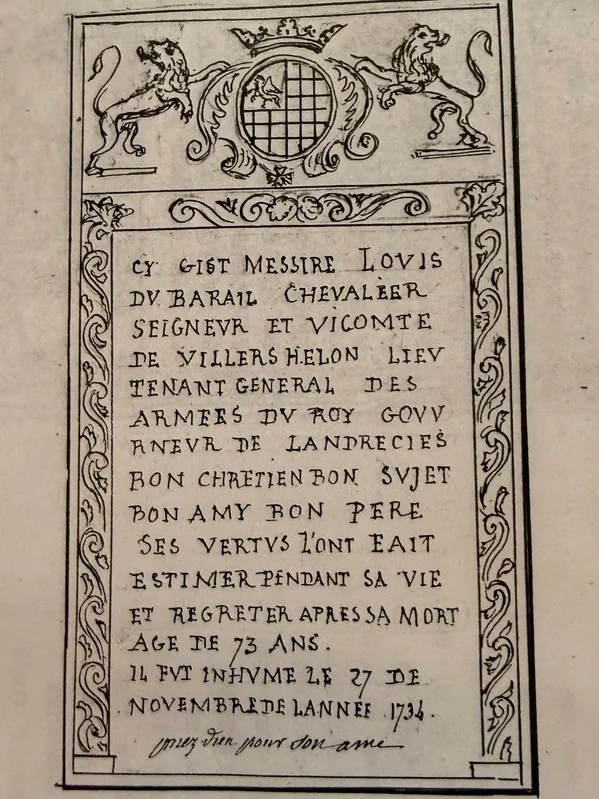 CY GIST MESSIRE LOVIS
DV BARAIL CHEVALEER
SEIGNEVR ET VICOMTE
DE VILLERS HELON LIEV
TENANT GENERAL DES
ARMEES DV ROY GOVV
RNEVR DE LANDRECIES
BON CHRETIEN BON SVJET
BON AMY BON PERE
SES VERTVS L'ONT EAIT
ESTIMER PENDANT SA VIE
ET REGRETER APRES SA MORT
AGE DE 73 ANS.
IL FVT INHVME LE 27 DE
NOVEMBRE DE LANNEE 1734.
priez dieu pour son ame